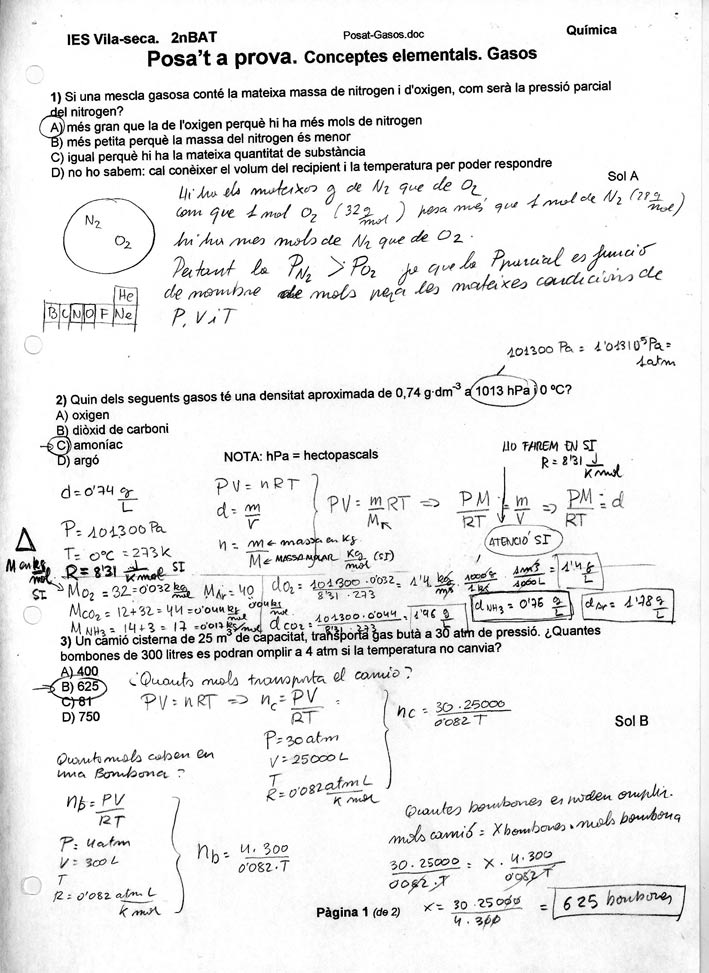 IES Vila-seca. 2nBAT
Posat-Gasos.doc
Química
Posa't a prova. Conceptes elementals. Gasos
1) Si una mescla gasosa conté la mateixa massa de nitrogen i d'oxigen, com serà la pressió parcial
del nitrogen?
A) més gran que la de l'oxigen perquè hi ha més mols de nitrogen
B) més petita perquè la massa del nitrogen és menor
C) igual perquè hi ha la mateixa quantitat de substància
D) no ho sabem: cal conèixer el volum del recipient i la temperatura per poder respondre
Sol A
Hi ha els mateixos g de N2 que de O2
com que 1 mol O2 (32 g/mol) pesa més que 1 mol de N2 (28 g/mol)
hi ha mes mols de N2 que de O2.
Pertant la PN2 > PO2 ja que la Pparcial es funció
de nombre de mols per a les mateixes condicions de
P, V i T
N2
O2
He
B C N O F Ne
101300 Pa = 1'013 10^5 Pa =
1atm
2) Quin dels seguents gasos té una densitat aproximada de 0,74 g·dm-3 a 1013 hPa i 0 ºC?
A) oxigen
B) diòxid de carboni
C) amoníac
D) argó
NOTA: hPa = hectopascals
HO FAREM EN SI
R = 8'31 J/K mol
d = 0'74 g/L
P = 101300 Pa
T = 0ºC = 273 K
R = 8'31 J/K mol SI
PV = nRT
d = m/V
n = m ← massa en kg
M ← MASSA MOLAR kg/mol (SI)
PV = m/M RT => PM/RT = m/V => PM/RT = d
ATENCIÓ SI
M en kg/mol
SI
MO2 = 32 = 0'032 kg/mol MAr = 40
dO2 = 101300 · 0'032 / 8'31 · 273 = 1'4 kg/m3 · 1000g/1kg · 1m3/1000L = 1'4 g/L
MCO2 = 12+32 = 44 = 0'044 kg/mol
dCO2 = 101300 · 0'044 / 8'31 · 273 = 1'96 g/L
dNH3 = 0'76 g/L
dAr = 1'78 g/L
MNH3 = 14+3 = 17 = 0'017 kg/mol
3) Un camió cisterna de 25 m3 de capacitat, transporta gas butà a 30 atm de pressió. ¿Quantes
bombones de 300 litres es podran omplir a 4 atm si la temperatura no canvia?
A) 400
B) 625
C) 81
D) 750
Sol B
¿Quants mols transporta el camio?
PV = nRT => nc = PV/RT =
P = 30 atm
V = 25000 L
T
R = 0'082 atm L/K mol
nc = 30 · 25000 / 0'082 T
Quants mols caben en
una Bombona?
nb = PV/RT
P = 4 atm
V = 300 L
T
R = 0'082 atm. L/K mol
nb = 4 · 300 / 0'082 · T
Quantes bombones es poden omplir.
mols camió = X bombones · mols bombona
30 · 25000 / 0'082 · T = X · 4 · 300 / 0'082 T
X = 30 · 25000 / 4 · 300 = 625 bombones
Pàgina 1 (de 2)